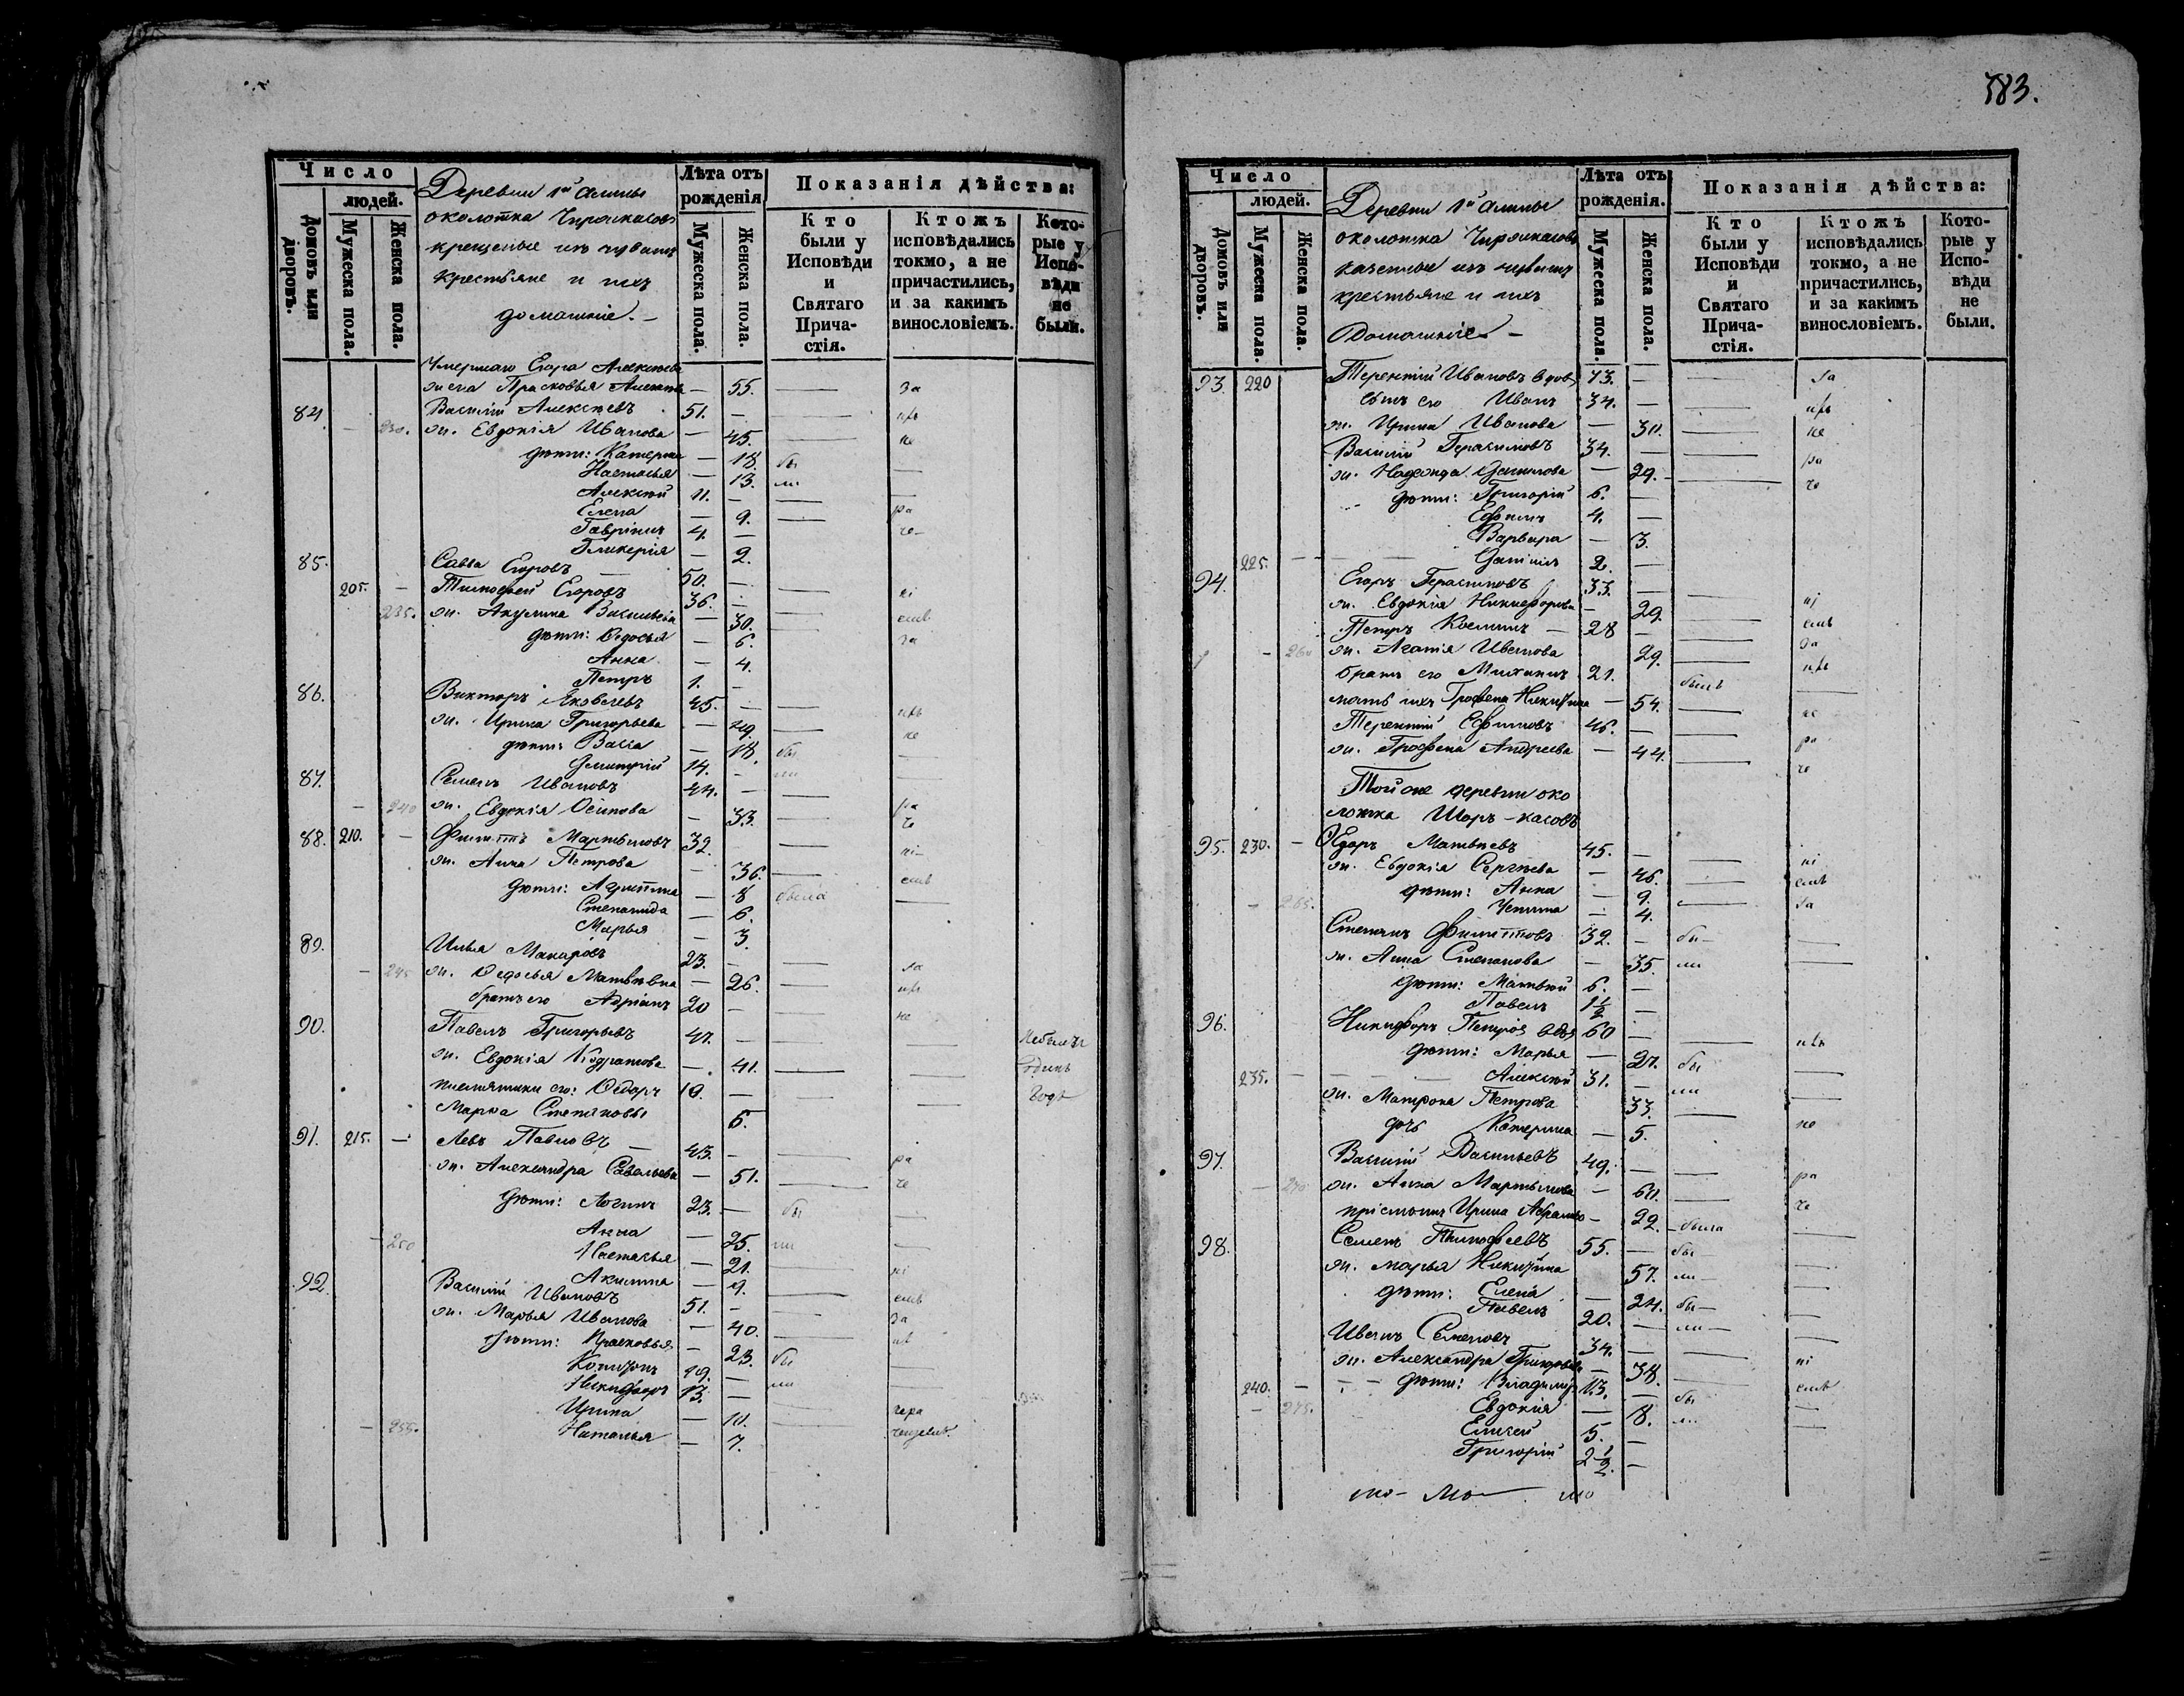 Число
людей.
Домовъ или дворовъ.
Мужеска пола.
Женска пола.
Деревни 1й
околотка
крещеные изъ чувашъ
крестьяне и ихъ
домашніе. —
Лѣта отъ рожденія
Мужеска пола.
Женска пола.
Показанія дѣйства:
Кто были у Исповѣди и Святаго Причастія.
Ктожъ исповѣдались токмо, а не причастились, и за какимъ винословіемъ.
Которые у Исповѣди не были.
Умершаго Егора Алексѣева
жена Прасковья — 55. — за
84. Василій Алексѣевъ 51. —
230. ж. Евдокія Ивановa — 45. — не
дѣти: Катерина — 18. бы —
Настасья — 13. ли —
Алексѣй 11. —
Елена — 9. — ра
Гаврiилъ 4. — че
Гликерія — 2.
85. Савва Егоровъ 50. —
205. Тимофей Егоровъ 36. — ні
235. ж. Акулина Васильева — 30. — емъ
дѣти: Ѳедосья — 6. за
Анна — 4.
Петръ 1. —
86. Викторъ Яковлевъ 45. —
ж. Ирина Григорьева — 49. — не
дѣти: Васса — 18. бы —
Дмитрій 14. — ли
87. Семенъ Ивановъ 44. —
240 ж. Евдокія Осипова — 33. — че
88. 210. Филиппъ Мартыновъ 32. — ні
ж. Анна Петрова — 36. — емъ
дѣти: Агрипина — 8 была —
Степанида — 6.
Марья — 3.
89. Илья Макаровъ 23. — за
245 ж. Ѳедосья Матвѣева — 26. —
братъ его Адріанъ 20 — не
90. Павелъ Григорьевъ 47. —
ж. Евдокія — 41. — одинъ
племянники его: Ѳедоръ 19. — годъ
Марѳа Степановы 6.
91. 215. Левъ Павловъ 43. — ра
ж. Александра Савельева — 51. — че
дѣти: Логинъ 23. — бы —
Анна — 25. ли —
250 Настасья — 21. — ні
Акилина — 9.
92 Василій Ивановъ 51. — емъ
ж. Марья Иванова — 40. — за
дѣти: Прасковья — 23. бы
19. — ли —
Никифоръ 13. —
Ирина — 10. — нера
255. Наталья — 7.
783.
Число
людей.
Домовъ или дворовъ.
Мужеска пола.
Женска пола.
Деревни 1й
околотка
казенные изъ чувашъ
крестьяне и ихъ
домашніе —
Лѣта отъ рожденія.
Мужеска пола.
Женска пола.
Показанія дѣйства:
Кто были у Исповѣди и Святаго Причастія.
Ктожъ исповѣдались токмо, а не причастились, и за какимъ винословіемъ.
Которые у Исповѣди не были.
93. 220 Терентій Ивановъ вдовъ 73. — за
сынъ его Иванъ 34. —
ж. Ирина Иванова — 30. — не
Василій Герасимовъ 34. — ра
ж. Надежда Данилова — 29. — че
дѣти: Григорій 6. —
Ефимъ 4. —
Варвара — 3.
225. Даніилъ 2. —
94. Егоръ Герасимовъ 33. — ні
ж. Евдокія Никифорова — 29. — емъ
Петръ Козьминъ — 28 — за
260 ж. Агаѳія Иванова 29. —
братъ его Михаилъ 21. былъ —
мать ихъ Грофена Никитина — 54. — не
Терентій Ефимовъ 46. — ра
ж. Грофена Андреева — 44. — че
Той же деревни око
лотка Шоръ-касовъ
95. 230. Ѳедоръ Матвѣевъ 45. — ні
ж. Евдокія Сергѣева — 46. — емъ
дѣти: Анна — 9. — за
265. Устина — 4.
Степанъ Филипповъ 32. — бы —
ж. Анна Степанова — 35. ли —
дѣти: Матвѣй 6. —
Павелъ 1½ —
96. Никифоръ Петровъ вдовъ 60 —
дѣти: Марья — 27. бы —
235. Алексѣй 31. — ли —
ж. Матрона Петрова 33. — не
дочь Катерина — 5.
97. Василій Васильевъ 49. — ра
270 ж. Анна Мартынова — 60. — че
пріемышъ Ирина — 22. была —
98. Семенъ Тимофеевъ 55. — бы —
ж. Марья Никитина 57. ли —
дѣти: Елена — 24. бы —
Павелъ 20. — ли —
Иванъ Семеновъ 34. — ні
ж. Александра Григорьева — 38. — емъ
240. дѣти: Владимiръ 13. — бы —
275. Евдокія — 8. ли —
Елисей 5. —
Григорій 2½ —